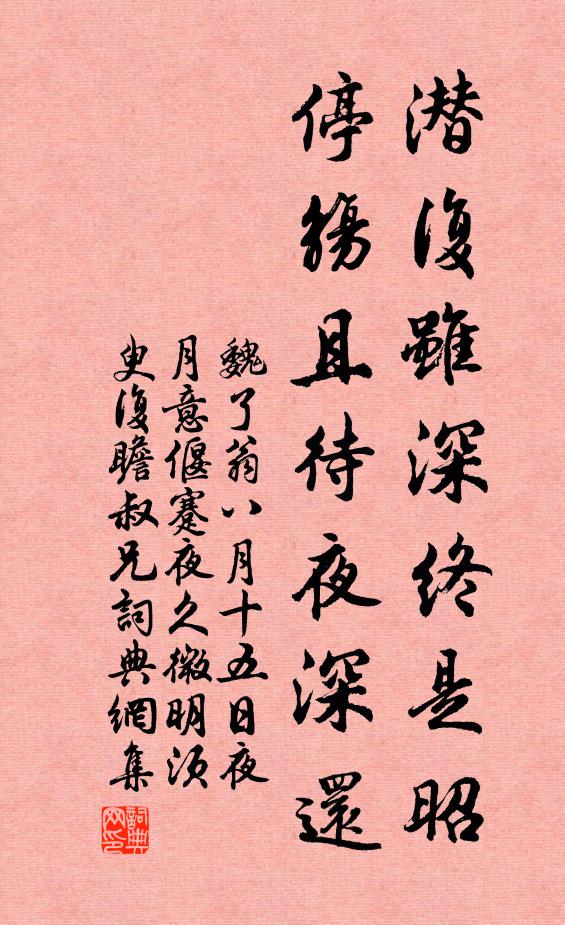 潜復雖深終是昭
停觴且待夜深還
魏了翁八月十五日夜
月意偃蹇夜久微明須
臾復瞻叔兄詞典網集
詞典网印